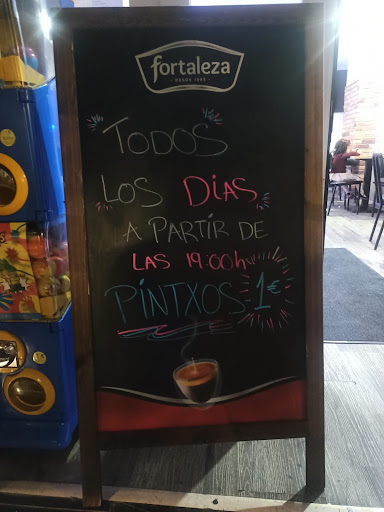 fortaleza
DESDE 1885
TODOS
LOS DÍAS
A PARTIR DE
LAS 19:00h
PINTXOS 1€